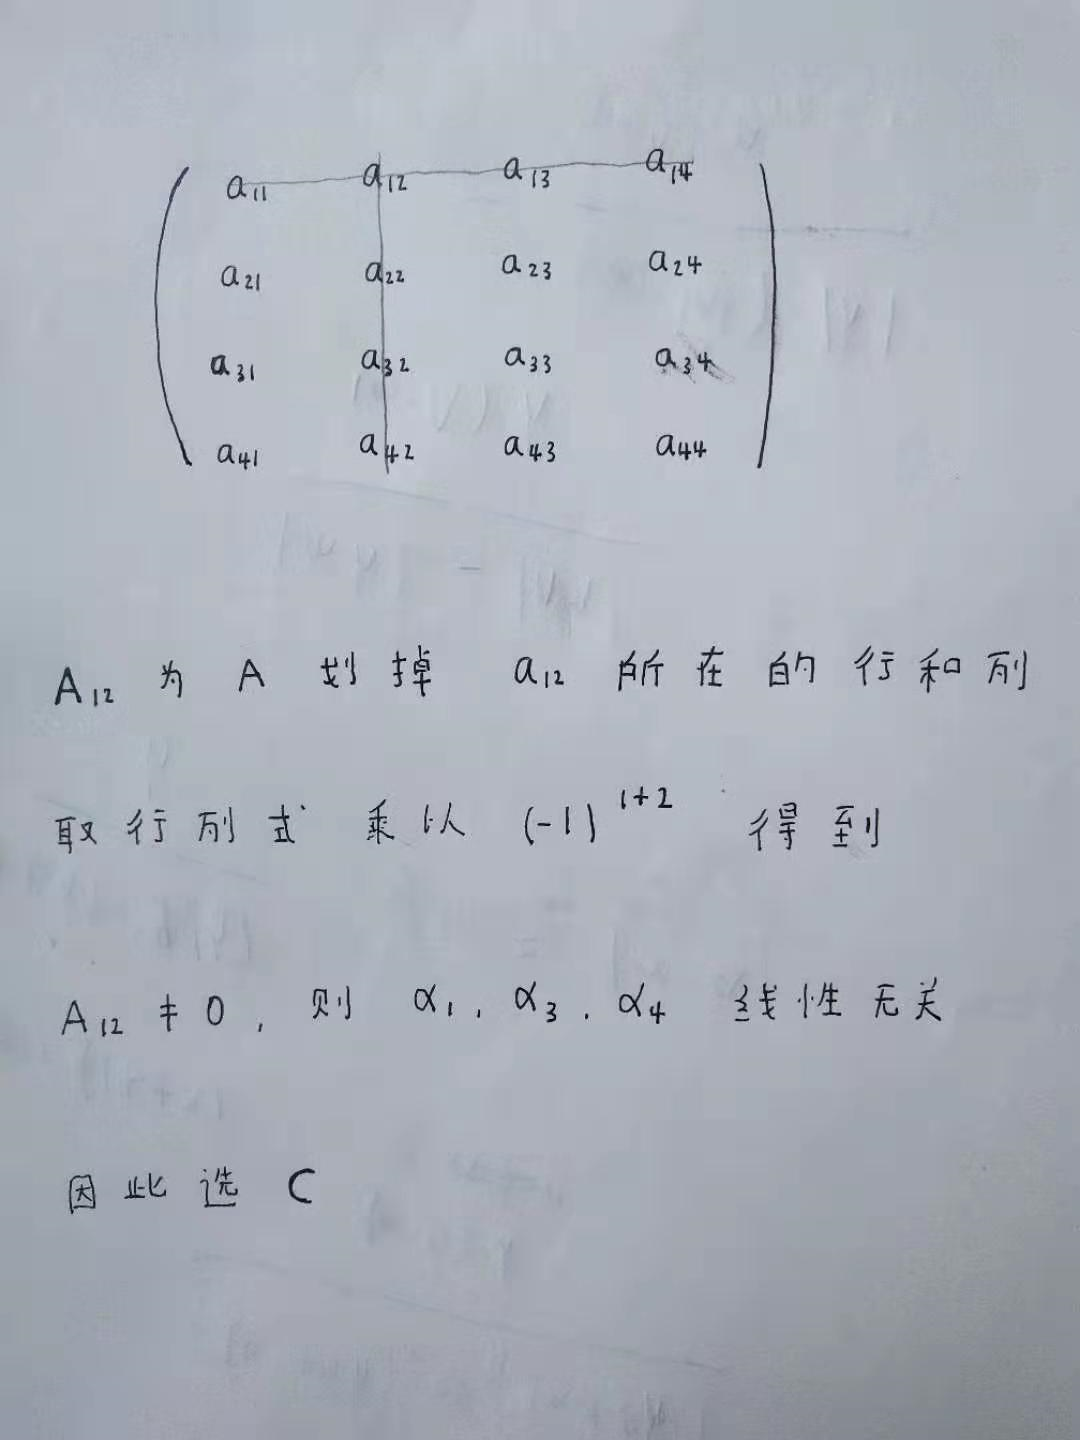 a11 a12 a13 a14
a21 a22 a23 a24
a31 a32 a33 a34
a41 a42 a43 a44
A12 为 A 划掉 a12 所在的行和列
取行列式 乘以 (-1)^1+2 得到
A12 ≠ 0, 则 α1, α3, α4 线性无关
因此选 C